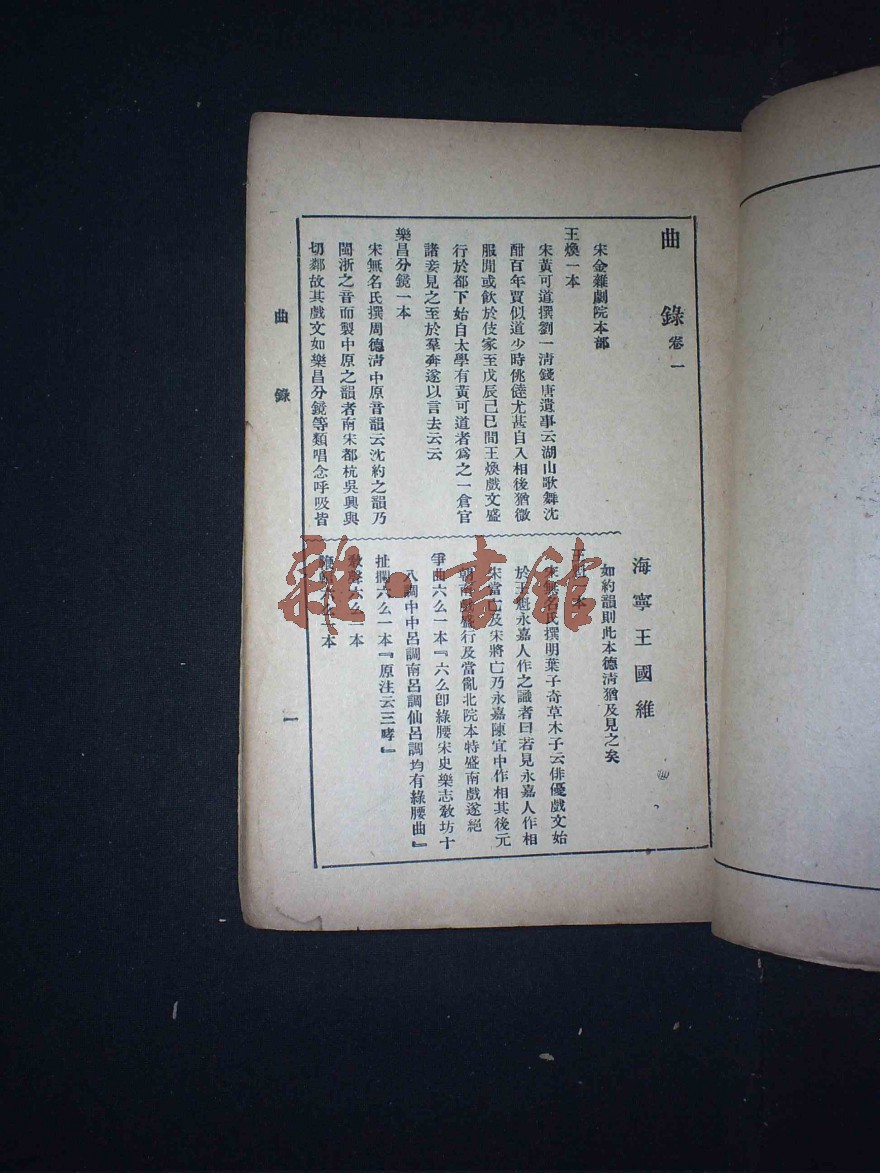 曲錄卷一
海寧王國維
宋金雜劇院本部
王煥一本
宋黃可道撰劉一清錢唐遺事云湖山歌舞沈
酣百年賈似道少時佻㒓尤甚自入相後猶微
服閒或飲於伎家至戊辰己巳間王煥戲文盛
行於都下始自太學有黃可道者爲之一倉官
諸妾見之至於羣奔遂以言去云云
樂昌分鏡一本
宋無名氏撰周德淸中原音韻云沈約之韻乃
閩浙之音而製中原之韻者南宋都杭吳興與
切鄰故其戲文如樂昌分鏡等類唱念呼吸皆
如約韻則此本德淸猶及見之矣
王 一本
宋無名氏撰明葉子奇草木子云俳優戲文始
於王魁永嘉人作之識者曰若見永嘉人作相
宋當亡及宋將亡乃永嘉陳宜中作相其後元
朝南戲盛行及當亂北院本特盛南戲遂絕
爭曲六么一本『六么卽綠腰宋史樂志敎坊十
八調中中呂調南呂調仙呂調均有綠腰曲』
扯攔六么一本『原注云三哮』
敎聲六么一本
鞭帽六么一本
曲錄
一
雜·書館